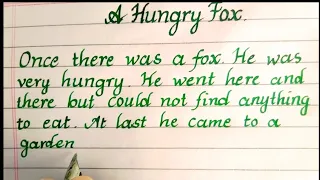 A Hungry Fox.
Once there was a fox. He was
very hungry. He went here and
there but could not find anything
to eat. At last he came to a
garden